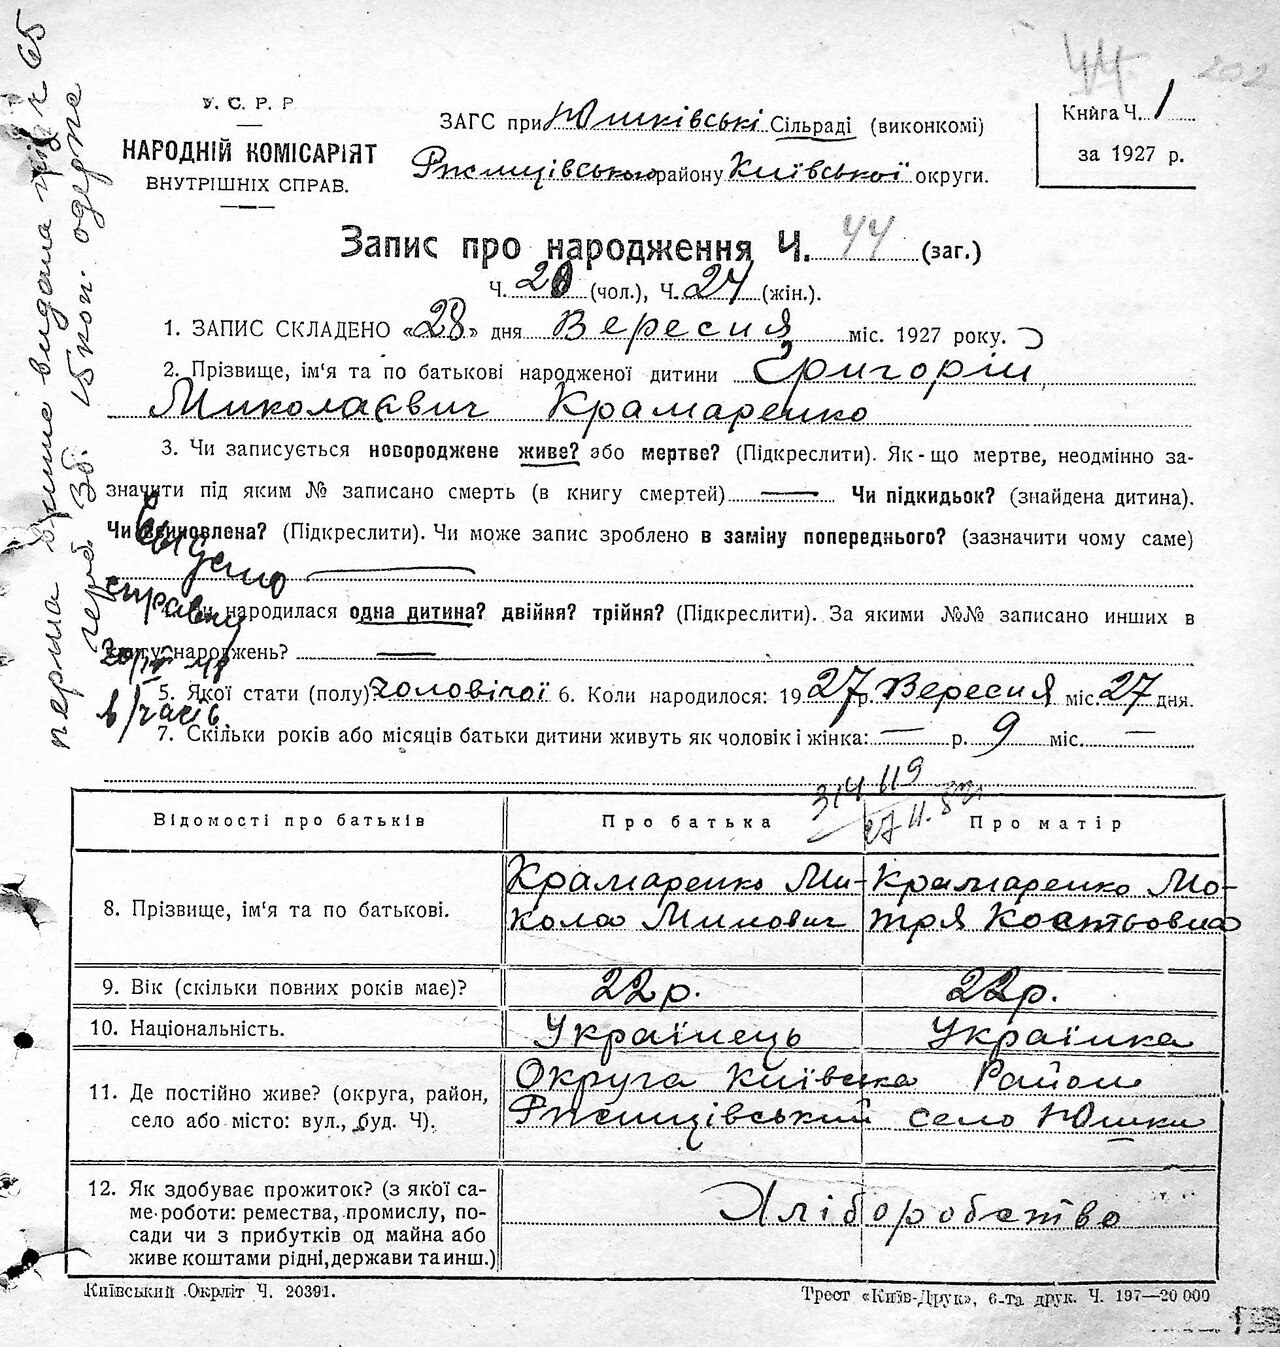 44 202
У. С. Р. Р
НАРОДНІЙ КОМІСАРІЯТ
ВНУТРІШНІХ СПРАВ.
ЗАГС при Юшківські Сільраді (виконкомі)
Ржищівського району Київської округи.
Книга Ч. 1
за 1927 р.
Запис про народження Ч. 44 (заг.)
Ч. 20 (чол.), Ч. 24 (жін.).
1. ЗАПИС СКЛАДЕНО «28» дня Вересня міс. 1927 року.
2. Прізвище, ім'я та по батькові народженої дитини Григорій
Миколаєвич Крамаренко
3. Чи записується новороджене живе? або мертве? (Підкреслити). Як-що мертве, неодмінно за-
значити під яким № записано смерть (в книгу смертей) — Чи підкидьок? (знайдена дитина).
Чи всиновлена? (Підкреслити). Чи може запис зроблено в заміну попереднього? (зазначити чому саме)
народилася одна дитина? двійня? трійня? (Підкреслити). За якими №№ записано инших в
книгу народжень? —
5. Якої стати (полу) чоловічої 6. Коли народилося: 1927 р. Вересня міс. 27 дня.
7. Скільки років або місяців батьки дитини живуть як чоловік і жінка: — р. 9 міс. —
перша видана під ч 65
Зб. 15 коп. одерже
справку
314119
27
Відомості про батьків
Про батька
Про матір
8. Прізвище, ім'я та по батькові.
Крамаренко Ми-
кола Минович
Крамаренко Мо-
тря Костьовна
9. Вік (скільки повних років має)?
22 р.
22 р.
10. Національність.
Українець
Українка
11. Де постійно живе? (округа, район,
село або місто: вул., буд. Ч).
Округа Київська Район
Ржищівський село Юшки
12. Як здобуває прожиток? (з якої са-
ме роботи: ремества, промислу, по-
сади чи з прибутків од майна або
живе коштами рідні, держави та инш.)
Хліборобство
Київський Окрліт Ч. 20391.
Трест «Київ-Друк», 6-та друк. Ч. 197—20 000